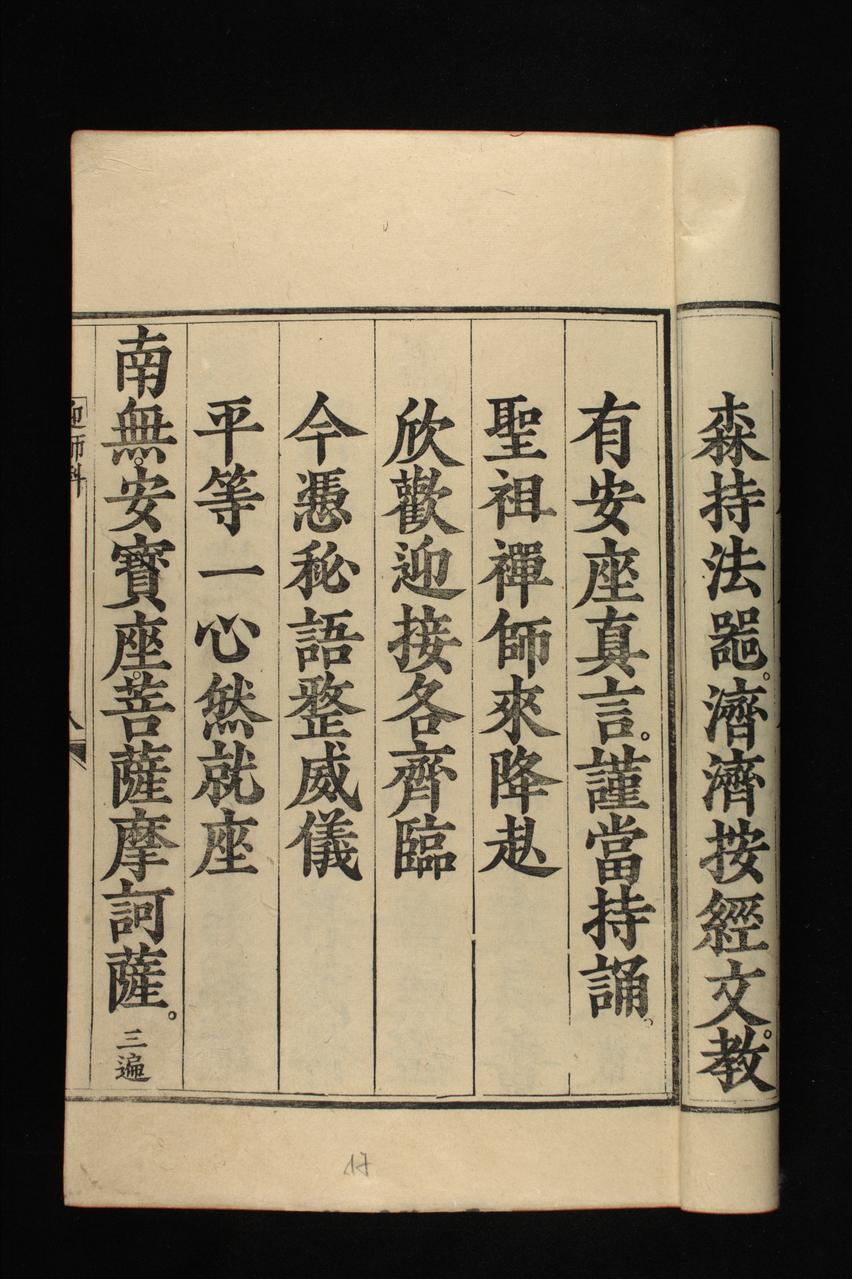 森持法噐。濟濟按經文。教
有安座真言。謹當持誦。
聖祖禪師來降赴
欣歡迎接各齊臨
今憑秘語整威儀
平等一心然就座
南無。安寶座。菩薩摩訶薩。三遍
迎師科
17